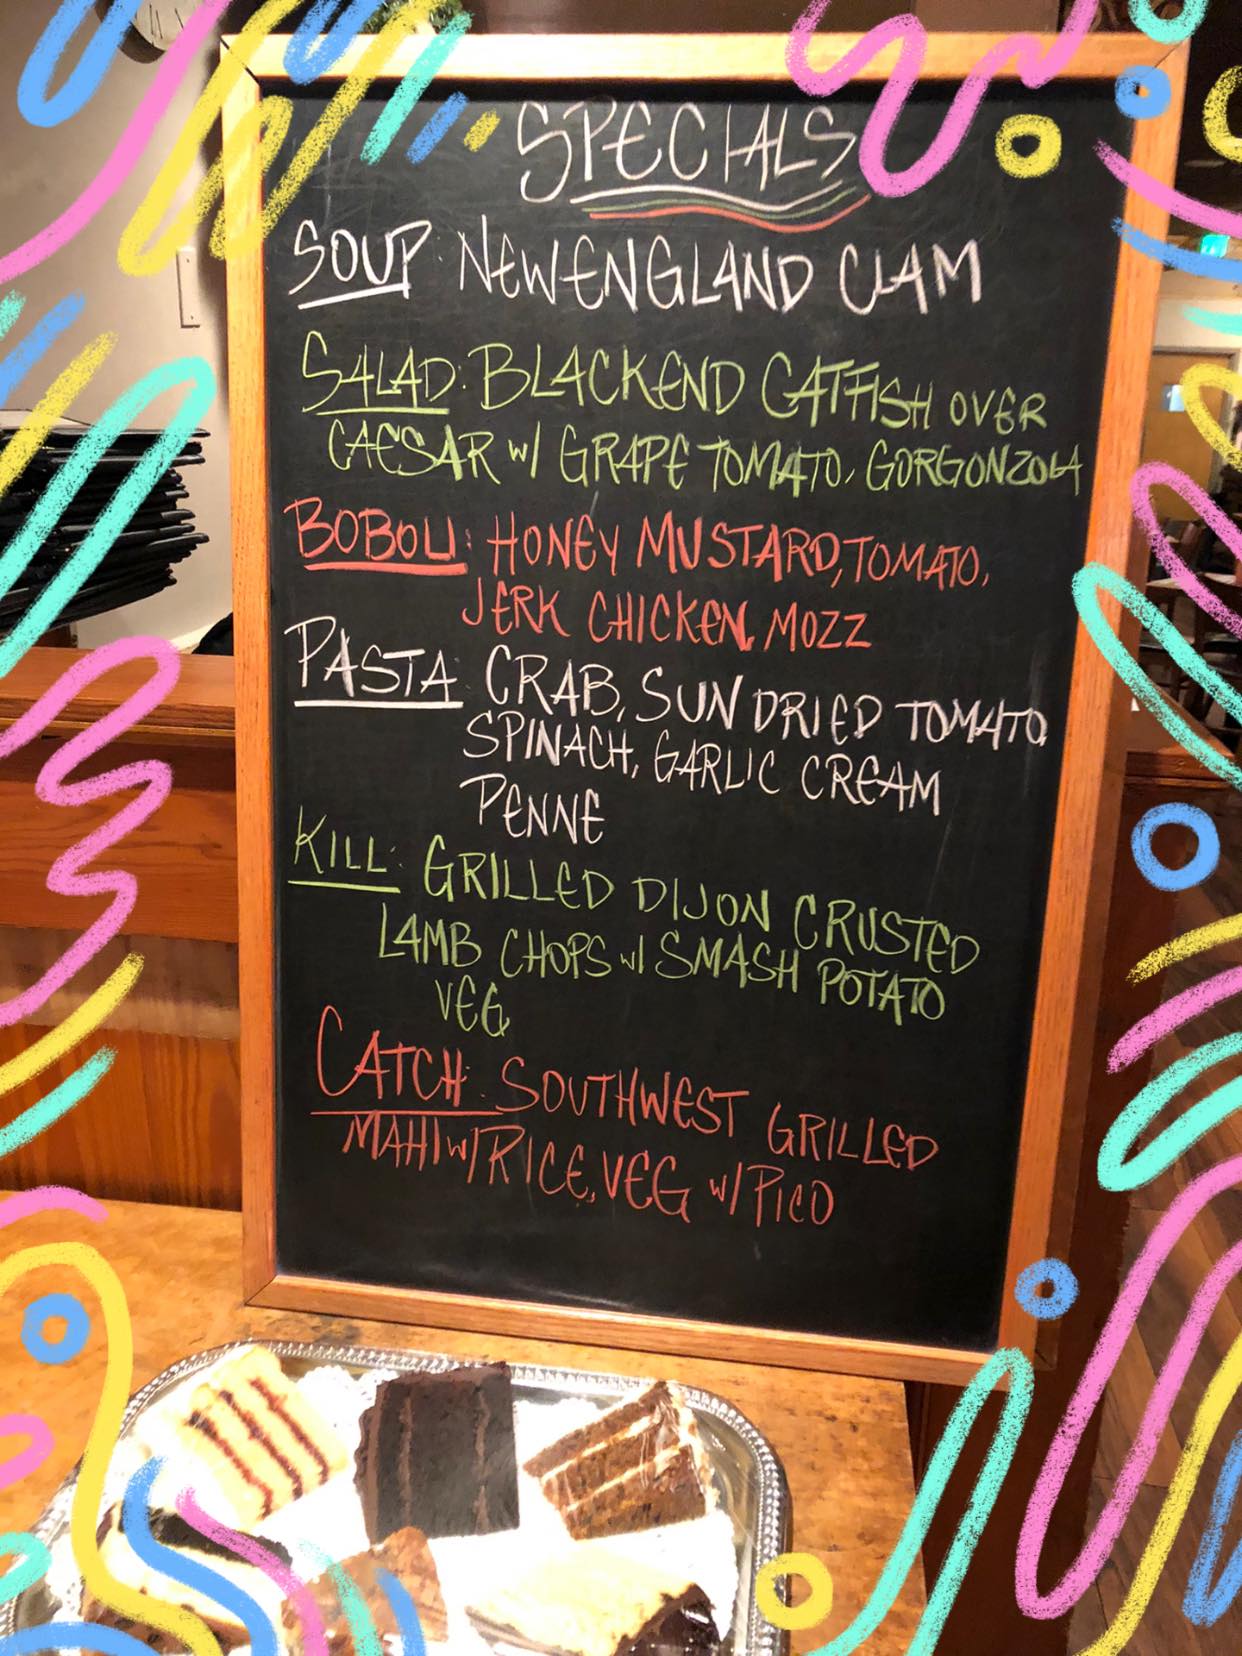 SPECIALS
SOUP: NEW ENGLAND CLAM
SALAD: BLACKEND CATFISH OVER
CAESAR w/ GRAPE TOMATO, GORGONZOLA
BOBOLI: HONEY MUSTARD, TOMATO,
JERK CHICKEN, MOZZ
PASTA: CRAB, SUN DRIED TOMATO
SPINACH, GARLIC CREAM
PENNE
KILL: GRILLED DIJON CRUSTED
LAMB CHOPS w/ SMASH POTATO
VEG
CATCH: SOUTHWEST GRILLED
MAHI w/ RICE, VEG w/ PICO